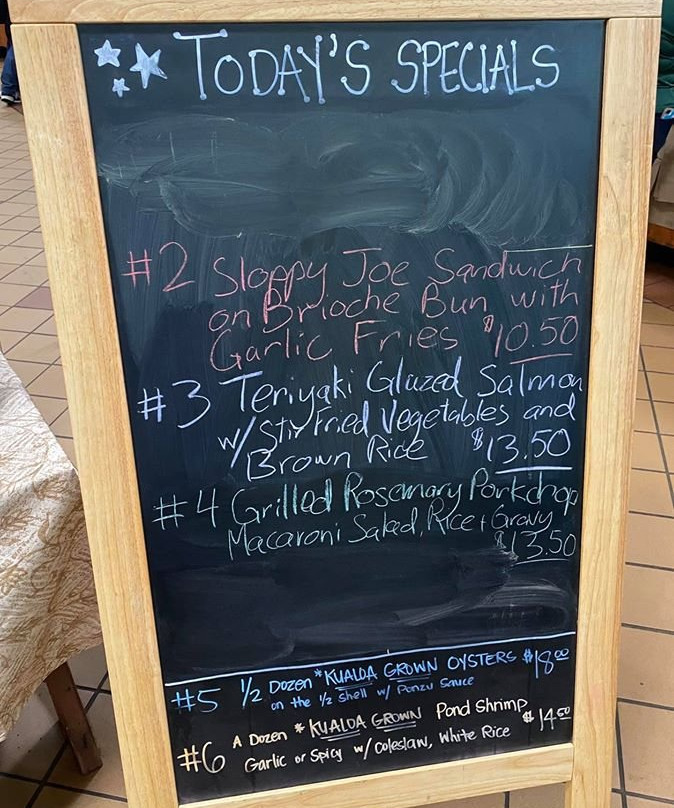 TODAY'S SPECIALS
#2 Sloppy Joe Sandwich
on Brioche Bun with
Garlic Fries $10.50
#3 Teriyaki Glazed Salmon
w/ Stir Fried Vegetables and
Brown Rice $13.50
#4 Grilled Rosemary Porkchop
Macaroni Salad, Rice + Gravy
$13.50
#5 1/2 Dozen *KUALOA GROWN OYSTERS $18.00
on the 1/2 shell w/ Ponzu Sauce
#6 A Dozen *KUALOA GROWN Pond Shrimp
Garlic or Spicy w/ coleslaw, White Rice $14.50